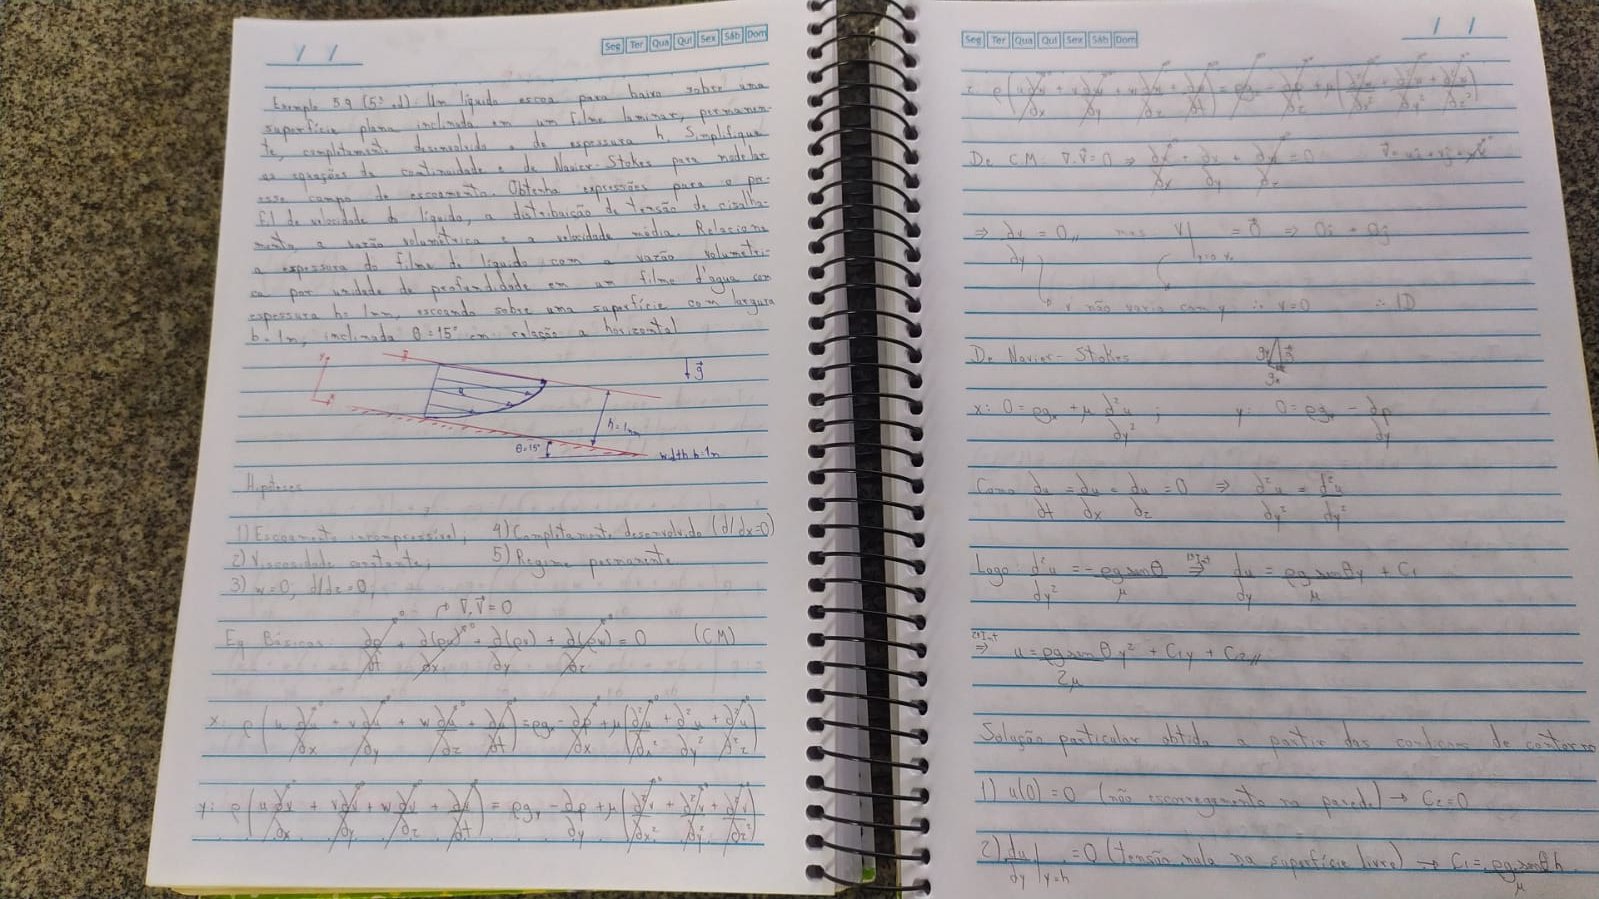 Seg Ter Qua Qui Sex Sáb Dom
Exemplo 5.9 (5ª ed). Um líquido escoa para baixo sobre uma
superfície plana inclinada em um filme laminar, permanen-
te, completamente desenvolvido e de espessura h. Simplifique
as equações da continuidade e de Navier-Stokes para modelar
esse campo de escoamento. Obtenha expressões para o per-
fil de velocidade do líquido, a distribuição de tensão de cisalha-
mento, a vazão volumétrica e a velocidade média. Relacione
a espessura do filme de líquido com a vazão volumétri-
ca por unidade de profundidade em um filme d'água com
espessura h = 1mm, escoando sobre uma superfície com largura
b = 1m, inclinada θ = 15° em relação a horizontal
g⃗
h = 1mm
θ = 15°
width b = 1m
Hipóteses
1) Escoamento incompressível; 4) Completamente desenvolvido (∂/∂x=0)
2) Viscosidade constante; 5) Regime permanente
3) w=0, ∂/∂z=0;
∇·V⃗ = 0
Eq. Básicas: ∂ρ/∂t + ∂(ρu)/∂x + ∂(ρv)/∂y + ∂(ρw)/∂z = 0 (CM)
x: ρ(u ∂u/∂x + v ∂u/∂y + w ∂u/∂z + ∂u/∂t) = ρgx - ∂p/∂x + μ(∂²u/∂x² + ∂²u/∂y² + ∂²u/∂z²)
y: ρ(u ∂v/∂x + v ∂v/∂y + w ∂v/∂z + ∂v/∂t) = ρgy - ∂p/∂y + μ(∂²v/∂x² + ∂²v/∂y² + ∂²v/∂z²)
Seg Ter Qua Qui Sex Sáb Dom
z: ρ(u ∂w/∂x + v ∂w/∂y + w ∂w/∂z + ∂w/∂t) = ρgz - ∂p/∂z + μ(∂²w/∂x² + ∂²w/∂y² + ∂²w/∂z²)
De C.M: ∇·V⃗ = 0 ⇒ ∂u/∂x + ∂v/∂y + ∂w/∂z = 0
⇒ ∂v/∂y = 0,, mas V| = 0⃗ ⇒ 0î + 0ĵ
v não varia com y ∴ v=0 ∴ 1D
De Navier-Stokes
x: 0 = ρgx + μ ∂²u/∂y² ; y: 0 = ρgy - ∂p/∂y
Como ∂u/∂t = ∂u/∂x = ∂u/∂z = 0 ⇒ ∂²u/∂y² = d²u/dy²
Logo: d²u/dy² = -ρg senθ/μ 1ª Int ⇒ du/dy = ρg senθ y/μ + C1
2ª Int ⇒ u = ρg sen θ y²/2μ + C1y + C2,,
Solução particular obtida a partir das condições de contorno
1) u(0) = 0 (não escorregamento na parede) → C2 = 0
2) du/dy|y=h = 0 (tensão nula na superfície livre) → C1 = ρg senθ h/μ